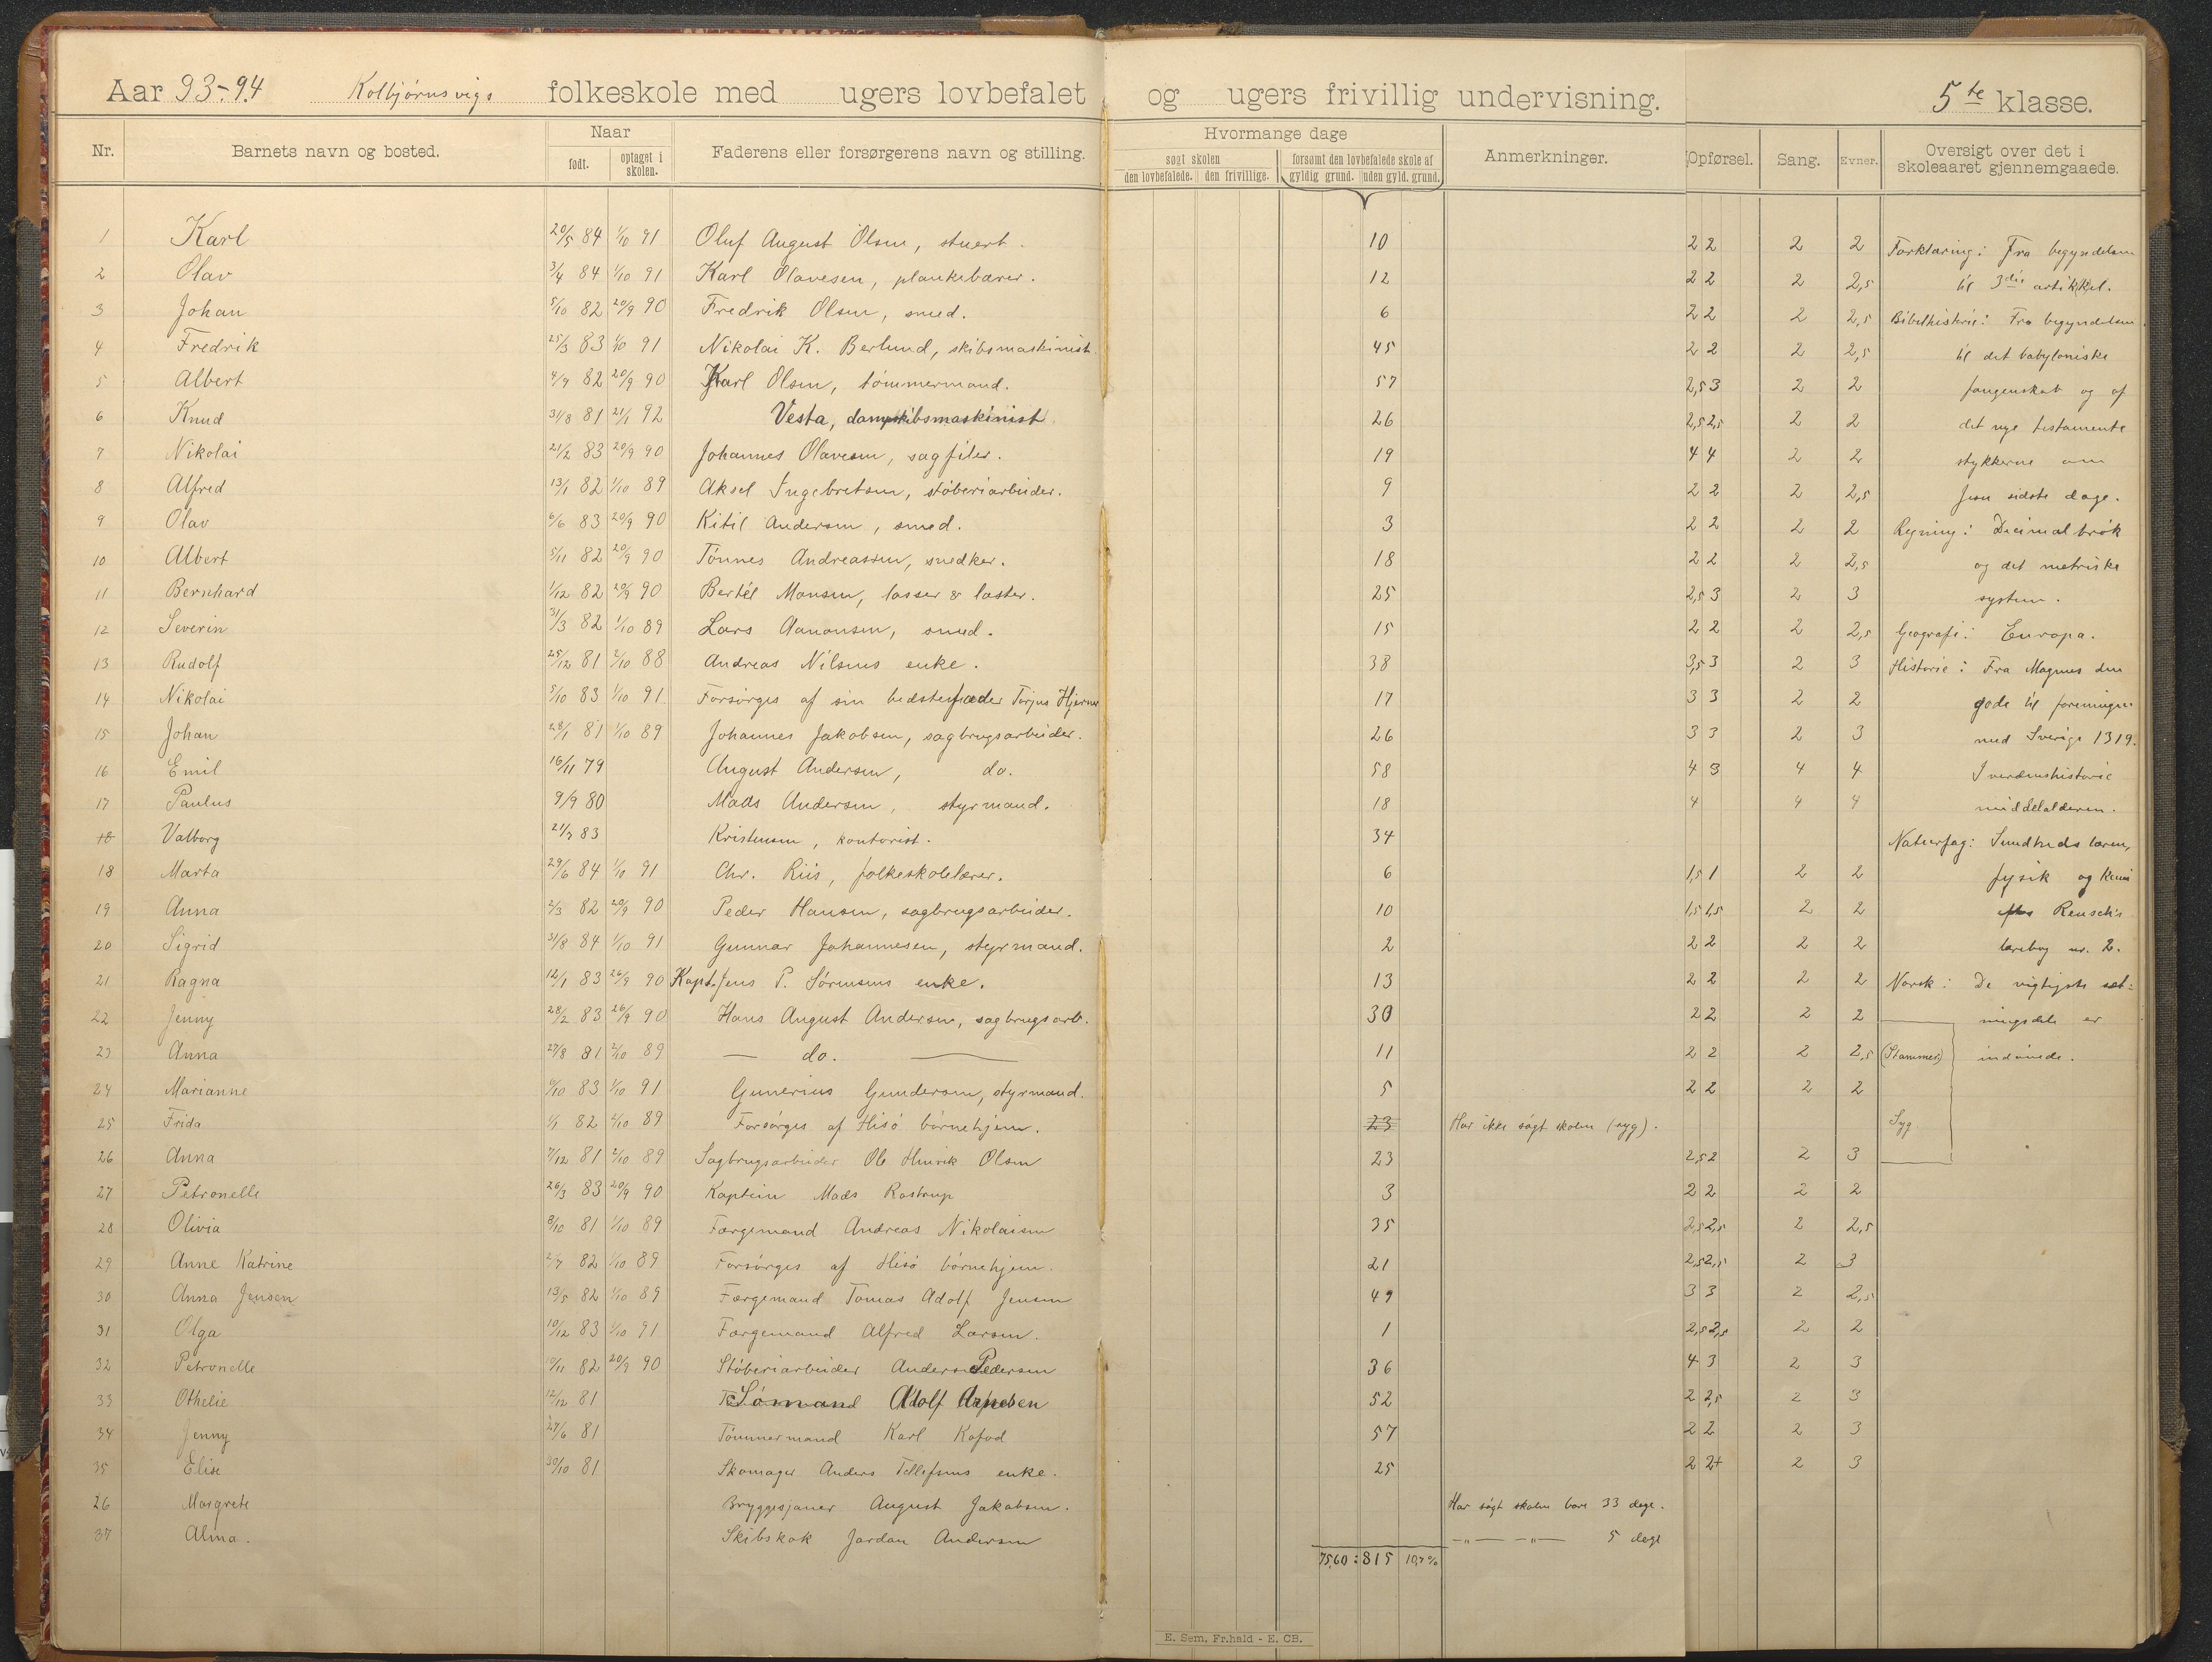 Aar 93-94 Kolbjørnsvigs folkeskole med ugers lovbefalet og ugers frivillig undervisning. 5te klasse.
Nr. Barnets navn og bosted. Naar Faderens eller forsørgerens navn og stilling. Hvormange dage Anmerkninger. Opførsel. Sang. Evner. Oversigt over det i skoleaaret gjennemgaaede.
født. optaget i skolen. søgt skolen forsømt den lovbefalede skole af
den lovbefalede. den frivillige. gyldig grund. uden gyld. grund.
1 Karl 20/5 84 1/10 91 Oluf August Olsen, stuert. 10 2 2 2 2 Forklaring: Fra begyndelsen
2 Olav 3/4 84 1/10 91 Karl Olavesen, plankebærer. 12 2 2 2 2,5 til 3die artikkel.
3 Johan 5/10 82 20/9 90 Fredrik Olsen, smed. 6 2 2 2 2,5 Bibelhistorie: Fra begyndelsen
4 Fredrik 25/3 83 1/10 91 Nikolai K. Berlund, skibsmaskinist. 45 2 2 2 2,5 til det babyloniske
5 Albert 4/9 82 20/9 90 Karl Olsen, tømmermand. 57 2,5 3 2 2 fangenskab og af
6 Knud 31/8 81 21/1 92 Vesta, dampskibsmaskinist. 26 2,5 2,5 2 2 det nye testamente
7 Nikolai 21/2 83 20/9 90 Johannes Olavesen, sagfiler. 19 4 4 2 2 stykkerne om
8 Alfred 13/1 82 1/10 89 Aksel Ingebretsen, støberiarbeider. 9 2 2 2 2,5 Jesu sidste dage.
9 Olav 6/6 83 20/9 90 Kitil Andersen, smed. 3 2 2 2 2 Regning: Decimalbrøk
10 Albert 5/11 82 20/9 90 Tønnes Andreassen, snedker. 18 2 2 2 2,5 og det metriske
11 Bernhard 1/12 82 20/9 90 Bertél Monsen, losser & laster. 25 2,5 3 2 3 system.
12 Severin 31/3 82 1/10 89 Lars Aanonsen, smed. 15 2 2 2 2,5 Geografi: Europa.
13 Rudolf 25/12 81 2/10 88 Andreas Nilsens enke. 38 3,5 3 2 3 Historie: Fra Magnus den
14 Nikolai 5/10 83 1/10 91 Forsørges af sin bedstefader Torjus 17 3 3 2 2 gode til foreningen
15 Johan 28/1 81 1/10 89 Johannes Jakobsen, sagbrugsarbeider. 26 3 3 2 3 med Sverige 1319.
16 Emil 16/11 79 August Andersen, do. 58 4 3 4 4 I verdenshistorie
17 Paulus 9/9 80 Mads Andersen, styrmand. 18 4 4 4 middelalderen.
18 Valborg 21/7 83 Kristensen, kontorist. 34 Naturfag: Sundhedslæren,
18 Marta 29/6 84 1/10 91 Chr. Riis, folkeskolelærer. 6 1,5 1 2 2 fysik og kemi
19 Anna 2/3 82 20/9 90 Peder Hansen, sagbrugsarbeider. 10 1,5 1,5 2 2 Reusch's
20 Sigrid 31/8 84 1/10 91 Gunnar Johannesen, styrmand. 2 2 2 2 2 lærebog nr. 2.
21 Ragna 12/1 83 26/9 90 Kapt. Jens P. Sørensens enke. 13 2 2 2 2 Norsk: De vigtigste sæt-
22 Jenny 28/2 83 26/9 90 Hans August Andersen, sagbrugsarb. 30 2 2 2 2 ningsdele er
23 Anna 27/8 81 2/10 89 — do. — 11 2 2 2 2,5 (Stammer) indøvede.
24 Marianne 9/10 83 1/10 91 Gunerius Gundersen, styrmand. 5 2 2 2 2
25 Frida 1/1 82 2/10 89 Forsørges af Hisø børnehjem. 23 Har ikke søgt skolen (syg). Syg
26 Anna 7/12 81 2/10 89 Sagbrugsarbeider Ole Henrik Olsen 23 2,5 2 2 3
27 Petronelle 26/3 83 20/9 90 Kaptein Mads Rostrup 3 2 2 2 2
28 Olivia 8/10 81 1/10 89 Færgemand Andreas Nikolaisen 35 2,5 2,5 2 2,5
29 Anne Katrine 2/7 82 1/10 89 Forsørges af Hisø børnehjem. 21 2,5 2,5 2 3
30 Anna Jensen 13/5 82 1/10 89 Færgemand Tomas Adolf Jensen 49 3 3 2 2,5
31 Olga 10/12 83 1/10 91 Færgemand Alfred Larsen. 1 2,5 2,5 2 2
32 Petronelle 10/11 82 20/9 90 Støberiarbeider Anders Pedersen 36 4 3 2 3
33 Othelie 12/12 81 Sømand Adolf 52 2 2,5 2 3
34 Jenny 27/6 81 Tømmermand Karl Kofod 57 2 2 2 3
35 Elise 30/10 81 Skomager Anders Tellefsens enke. 25 2 2+ 2 3
26 Margrete Bryggesjauer August Jakobsen. Har søgt skolen bare 33 dage.
37 Alma. Skibskok Jordan Andersen —"— —"— 5 dage
7560:815 10,7%
E. Sem, Fr.hald - E. CB.